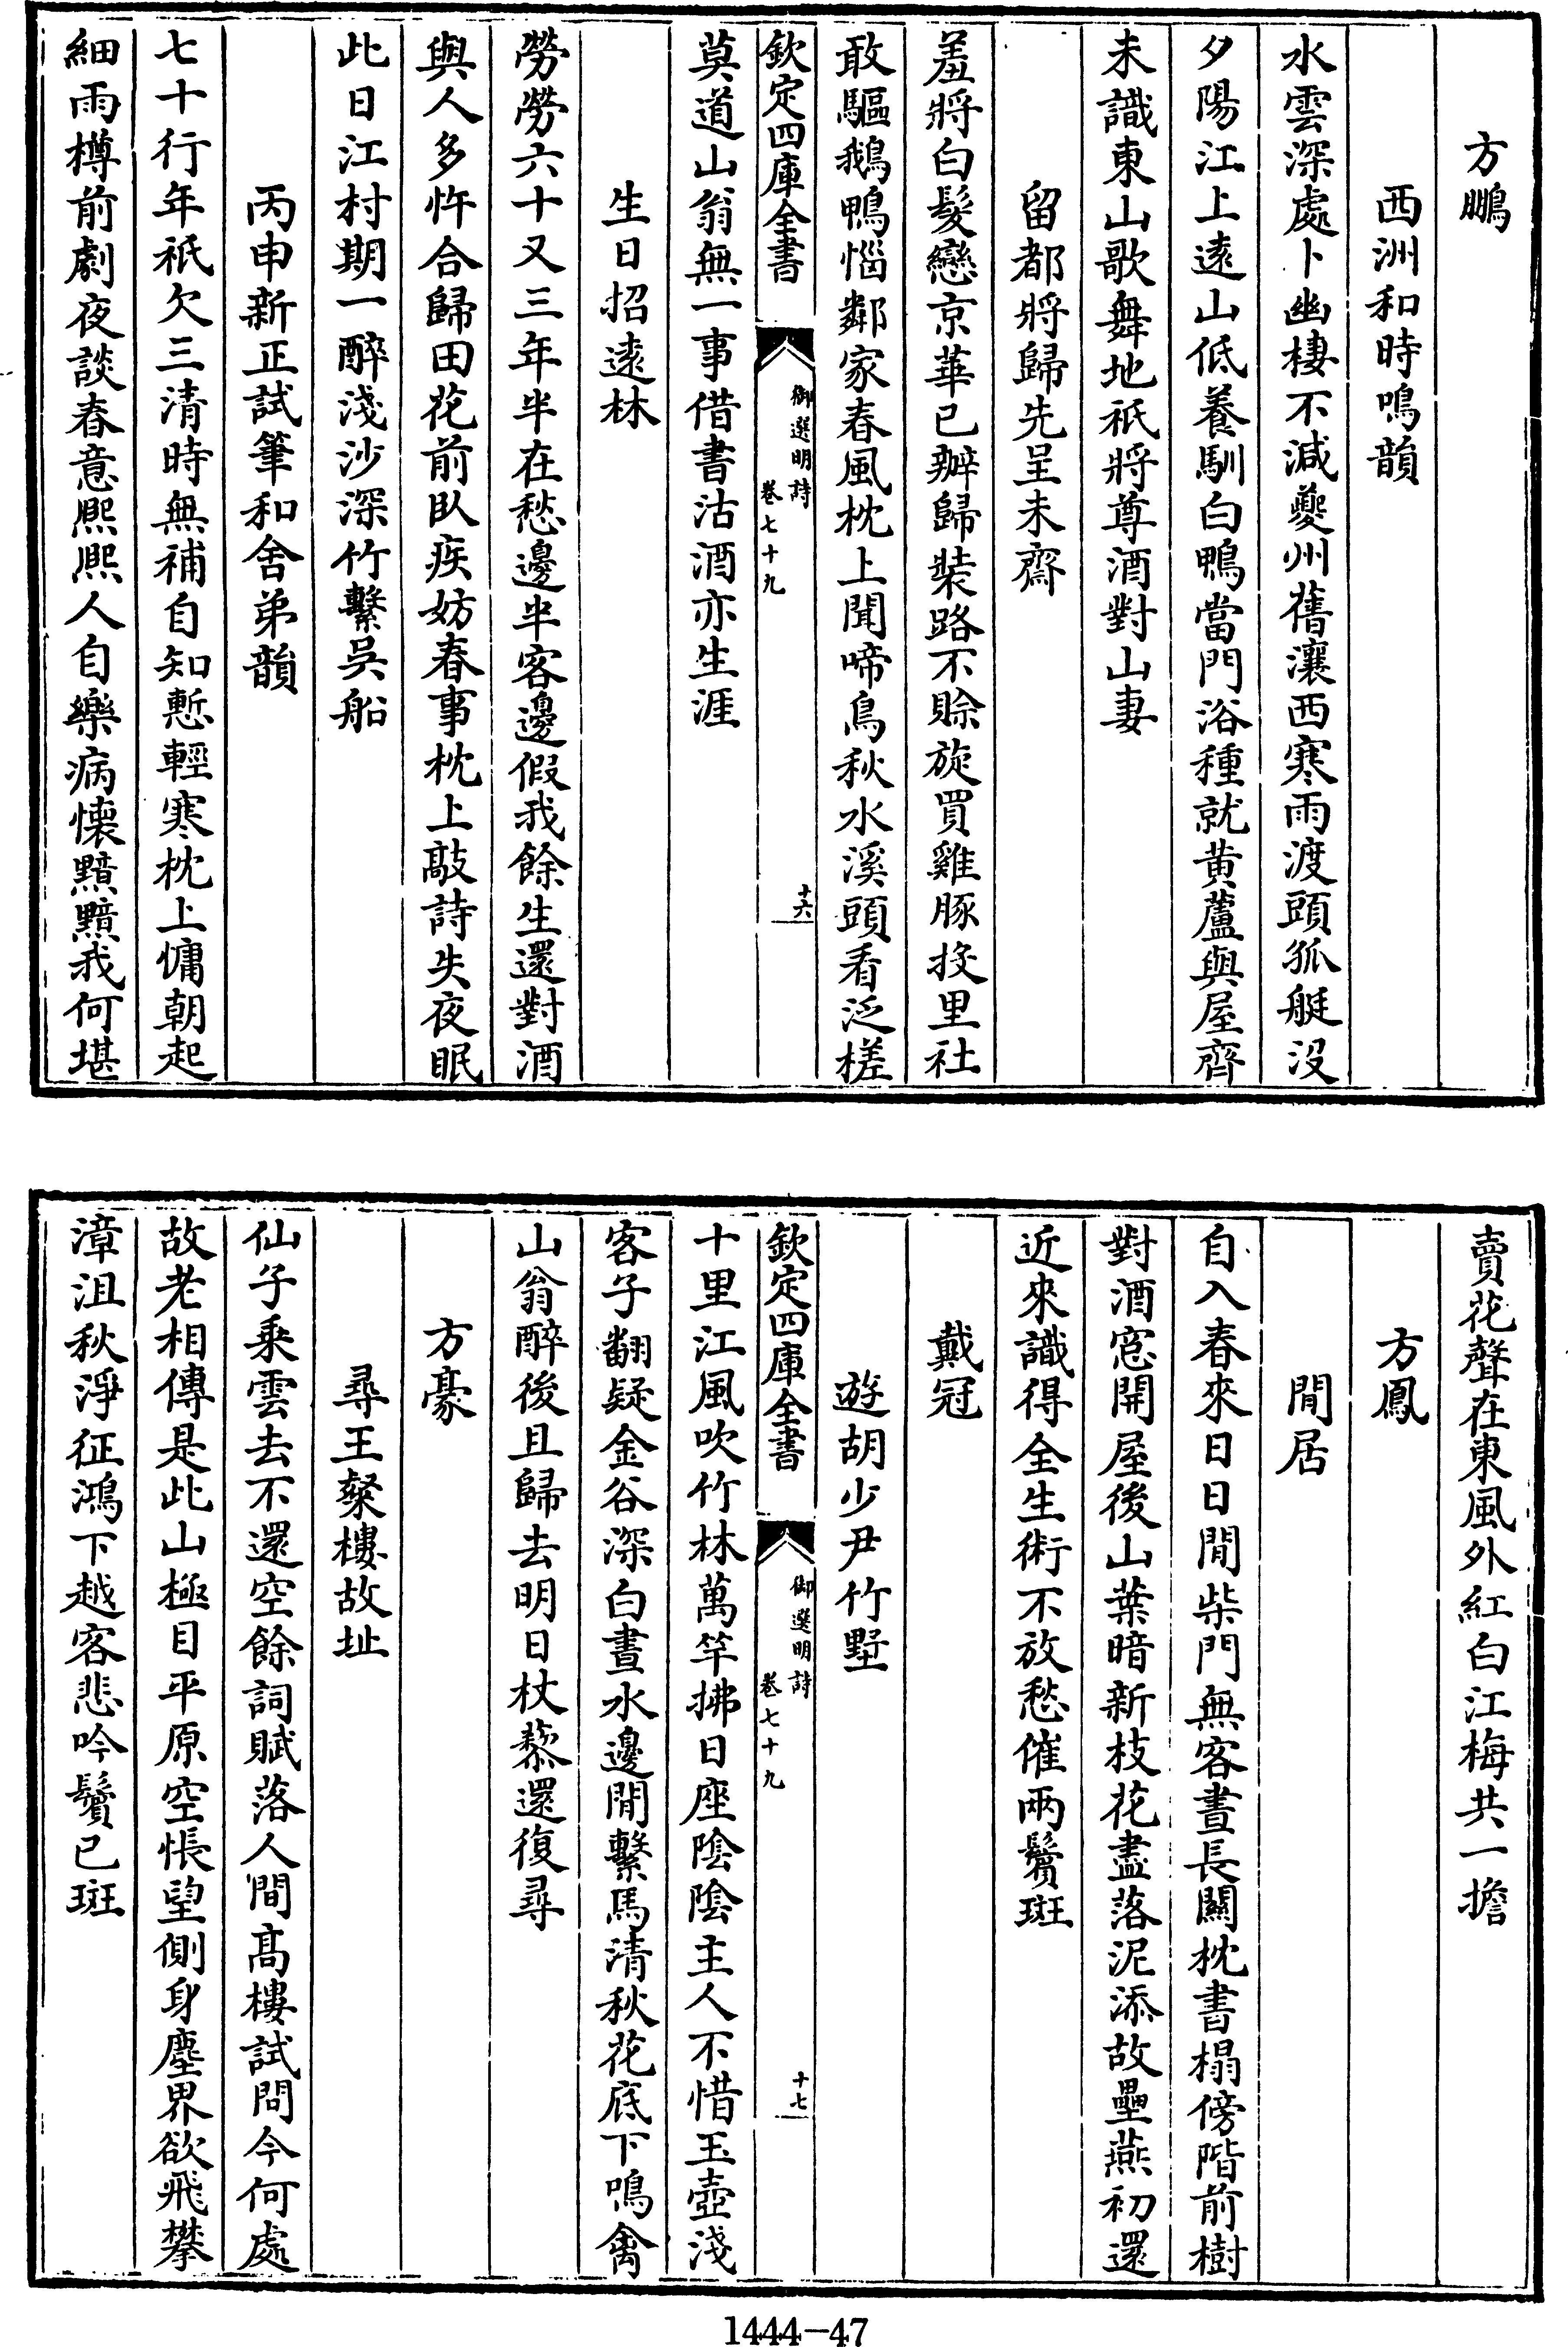 方鵬
西洲和時鳴韻
水雲深處卜幽棲不減夔州舊瀼西寒雨渡頭孤艇没
夕陽江上遠山低養馴白鴨當門浴種就黄蘆與屋齊
未識東山歌舞地祇將尊酒對山妻
留都將歸先呈未齋
羞將白髮戀京華已辦歸裝路不賒旋買雞豚投里社
敢驅鵝鴨惱鄰家春風枕上聞啼鳥秋水溪頭看泛槎
欽定四庫全書
御選明詩
卷七十九
十六
莫道山翁無一事借書沽酒亦生涯
生日招遠林
勞勞六十又三年半在愁邊半客邊假我餘生還對酒
與人多忤合歸田花前臥疾妨春事枕上敲詩失夜眠
此日江村期一醉淺沙深竹繫吳船
丙申新正試筆和舍弟韻
七十行年祇欠三清時無補自知慙輕寒枕上慵朝起
細雨樽前劇夜談春意熈熈人自樂病懷黯黯我何堪
賣花聲在東風外紅白江梅共一擔
方鳳
閒居
自入春來日日閒柴門無客晝長關枕書榻傍階前樹
對酒窓開屋後山葉暗新枝花盡落泥添故壘燕初還
近來識得全生術不放愁催兩鬢斑
戴冠
遊胡少尹竹墅
欽定四庫全書
御選明詩
卷七十九
十七
十里江風吹竹林萬竿拂日座陰陰主人不惜玉壺淺
客子翻疑金谷深白晝水邊閒繫馬清秋花底下鳴禽
山翁醉後且歸去明日杖藜還復尋
方豪
尋王粲樓故址
仙子乘雲去不還空餘詞賦落人間髙樓試問今何處
故老相傳是此山極目平原空悵望側身塵界欲飛攀
漳沮秋淨征鴻下越客悲吟鬢已斑
1444-47